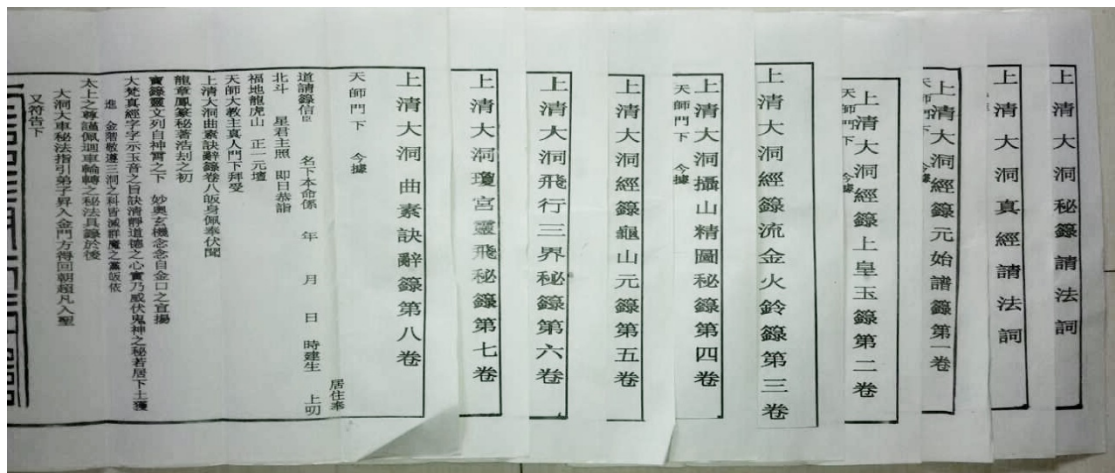 上清大洞秘籙請法詞
上清大洞真經請法詞
上清大洞經籙元始譜籙第一卷
天師門下 今據
上清大洞經籙上皇玉籙第二卷
天師門下 今據
上清大洞經籙流金火鈴籙第三卷
上清大洞攝山精圖秘籙第四卷
天師門下 今據
上清大洞經籙龜山元籙第五卷
上清大洞飛行三界秘籙第六卷
上清大洞瓊宮靈飛秘籙第七卷
上清大洞曲素訣辭籙第八卷
天師門下 今據
居住奉
道請籙信臣 名下本命係 年 月 日 時建生 上叩
北斗 星君主照 即日恭詣
福地龍虎山 正一元壇
天師大教主真人門下拜受
上清大洞曲素訣辭籙卷八皈身佩奉伏聞
龍章鳳篆秘著浩刦之初
寶籙靈文列自神霄之下 妙奥玄機念念自金口之宣揚
大梵真經字字示玉音之旨訣清靜道德之心實乃威伏鬼神之秘若居下土獲
進 金階敬遵三洞之科皆滅群魔之黨皈依
太上之尊謹佩迴車輪轉之秘法具籙於後
大洞大車秘法指引弟子昇入金門方得回朝超凡入聖
又符告下